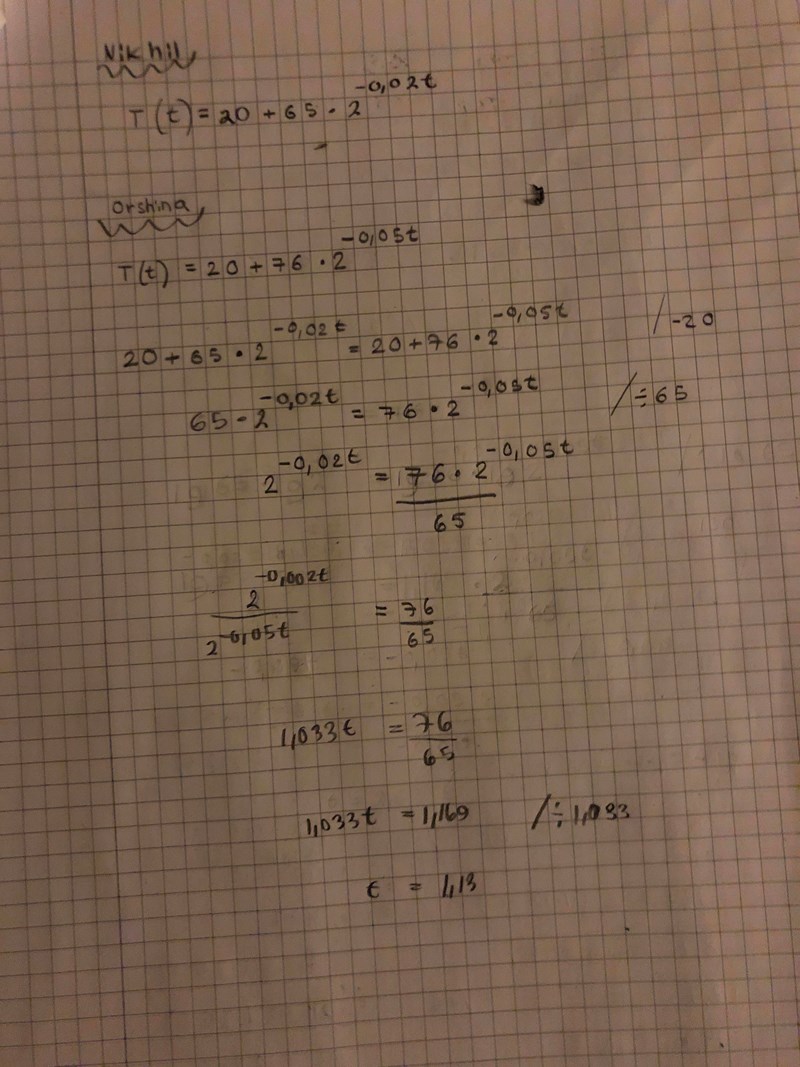 Nikhil
T(t) = 20 + 65 · 2^-0,02t
Orshina
T(t) = 20 + 76 · 2^-0,05t
20 + 65 · 2^-0,02t = 20 + 76 · 2^-0,05t /-20
65 · 2^-0,02t = 76 · 2^-0,05t /÷65
2^-0,02t = 76 · 2^-0,05t / 65
2^-0,002t / 2^-0,05t = 76/65
1,033t = 76/65
1,033t = 1,169 /÷1,033
t = 1,13